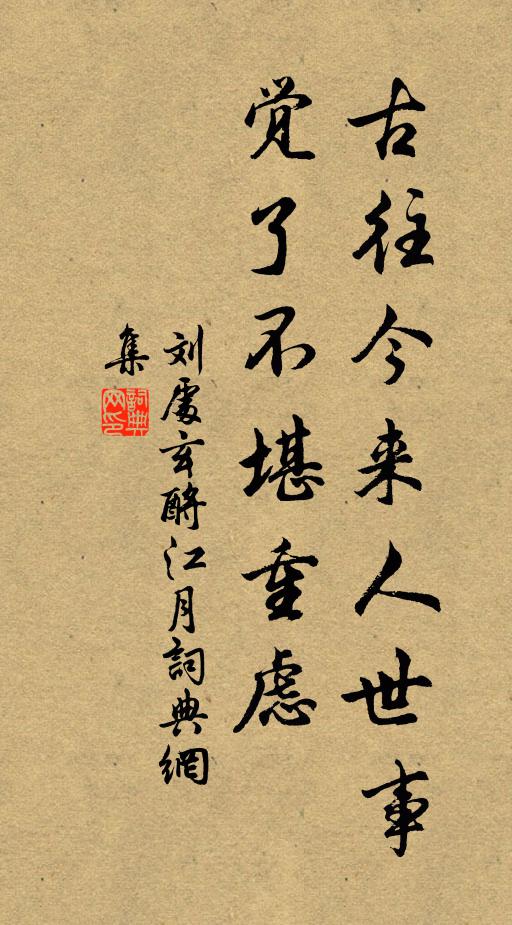 古往今来人世事
觉了不堪重虑
刘处玄酹江月詞典網
集
詞典
网印